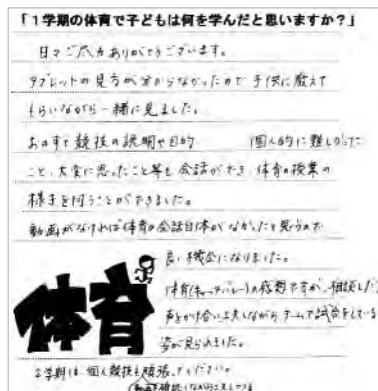 「1学期の体育で子どもは何を学んだと思いますか？」
日々ご尽力ありがとうございます。
タブレットの見方が分からなかったので子供に教えて
もらいながら一緒に見ました。
おのずと競技の説明や目的 個人的に難しかった
こと、大変に思ったこと等も会話ができ、体育の授業の
様子を伺うことができました。
動画がなければ体育の会話自体がなかったと思うので
良い機会になりました。
体育(キャッチバレー)の感想ですが、相談した
声をかけ合い工夫しながらチームで試合をしている
姿が見られました。
体育
2学期は個人競技も頑張ってください。
(動画で確認しながら工夫しつつ)